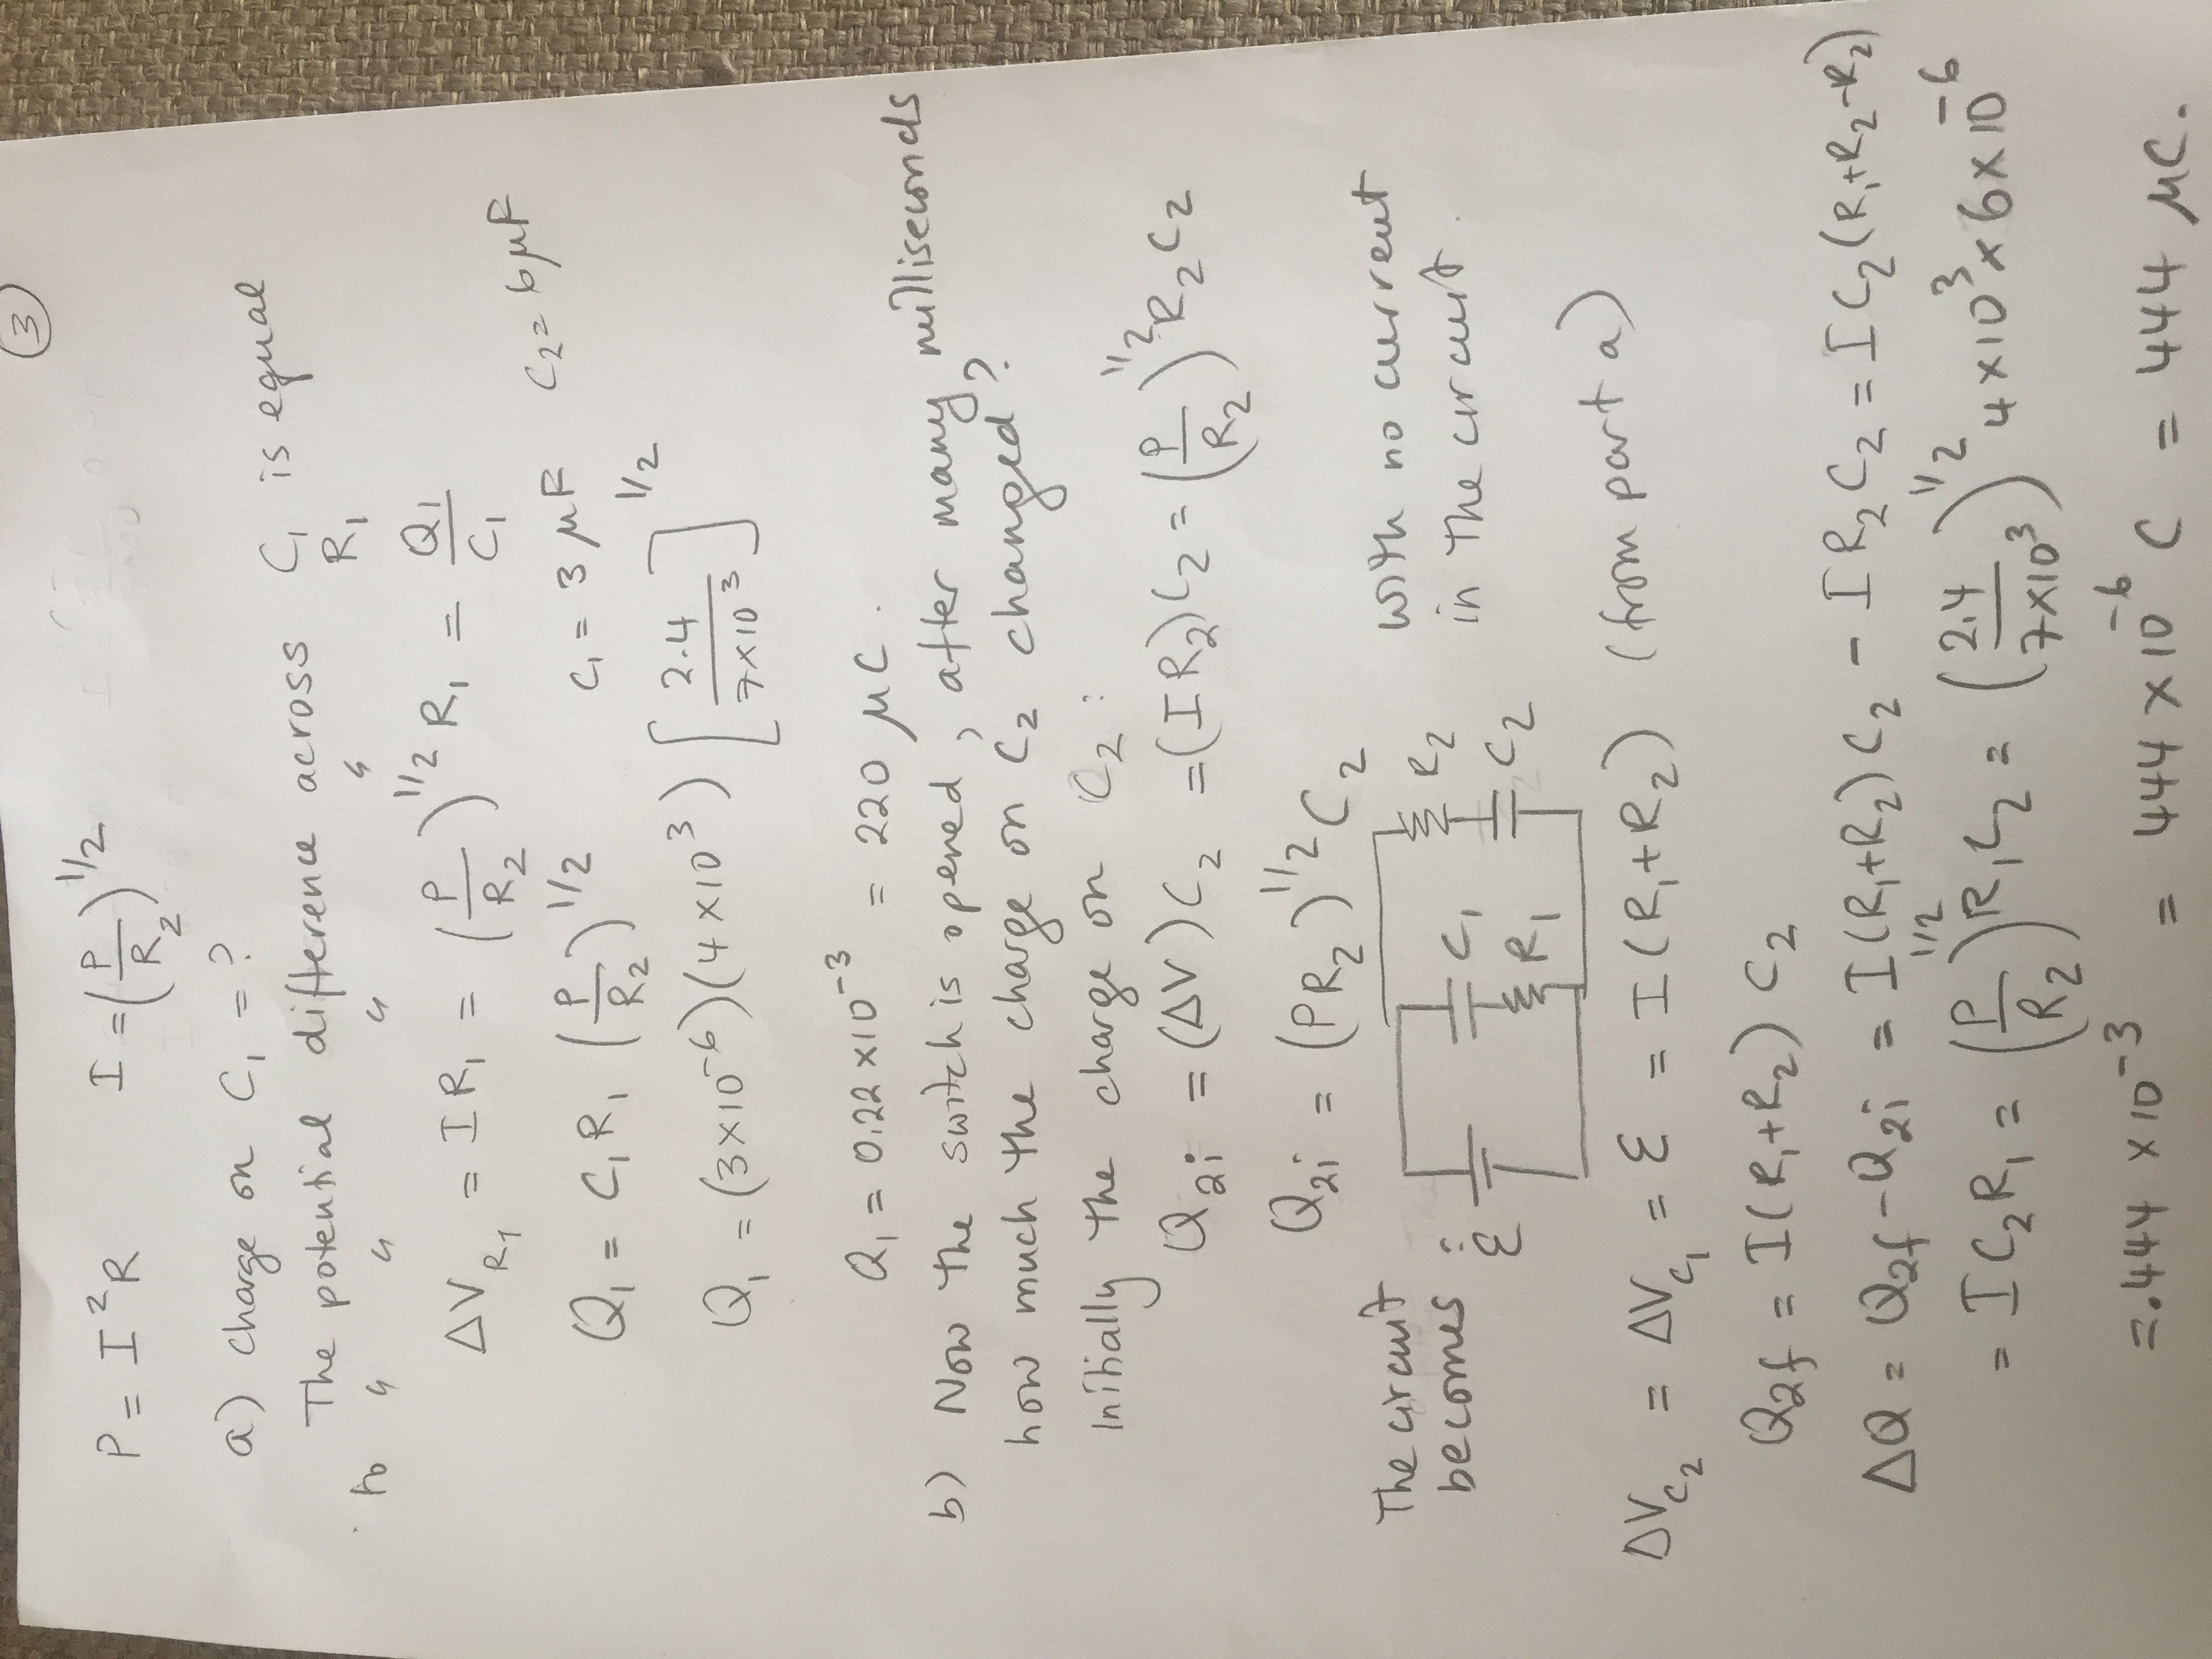 3
P = I²R I = (P/R₂)^1/2
a) charge on C₁ = ?
The potential difference across C₁ is equal
to " " " " R₁
ΔV_R₁ = IR₁ = (P/R₂)^1/2 R₁ = Q₁/C₁
Q₁ = C₁R₁ (P/R₂)^1/2 C₁ = 3 μF C₂ = 6 μF
Q₁ = (3×10⁻⁶)(4×10³) [2.4/7×10³]^1/2
Q₁ = 0.22 ×10⁻³ = 220 μC.
b) Now the switch is opened, after many milliseconds
how much the charge on C₂ changed?
Initially the charge on C₂ :
Q₂i = (ΔV)C₂ = (IR₂)C₂ = (P/R₂)^1/2 R₂C₂
Q₂i = (PR₂)^1/2 C₂
The circuit
becomes :
ε C₁ R₁ R₂ C₂
with no current
in the circuit.
ΔV_C₂ = ΔV_C₁ = ε = I(R₁+R₂) (from part a)
Q₂f = I(R₁+R₂) C₂
ΔQ = Q₂f - Q₂i = I(R₁+R₂)C₂ - IR₂C₂ = IC₂(R₁+R₂-R₂)
= IC₂R₁ = (P/R₂)^1/2 R₁C₂ = (2.4/7×10³)^1/2 4×10³×6×10⁻⁶
= .444 ×10⁻³ = 444×10⁻⁶ C = 444 μC.